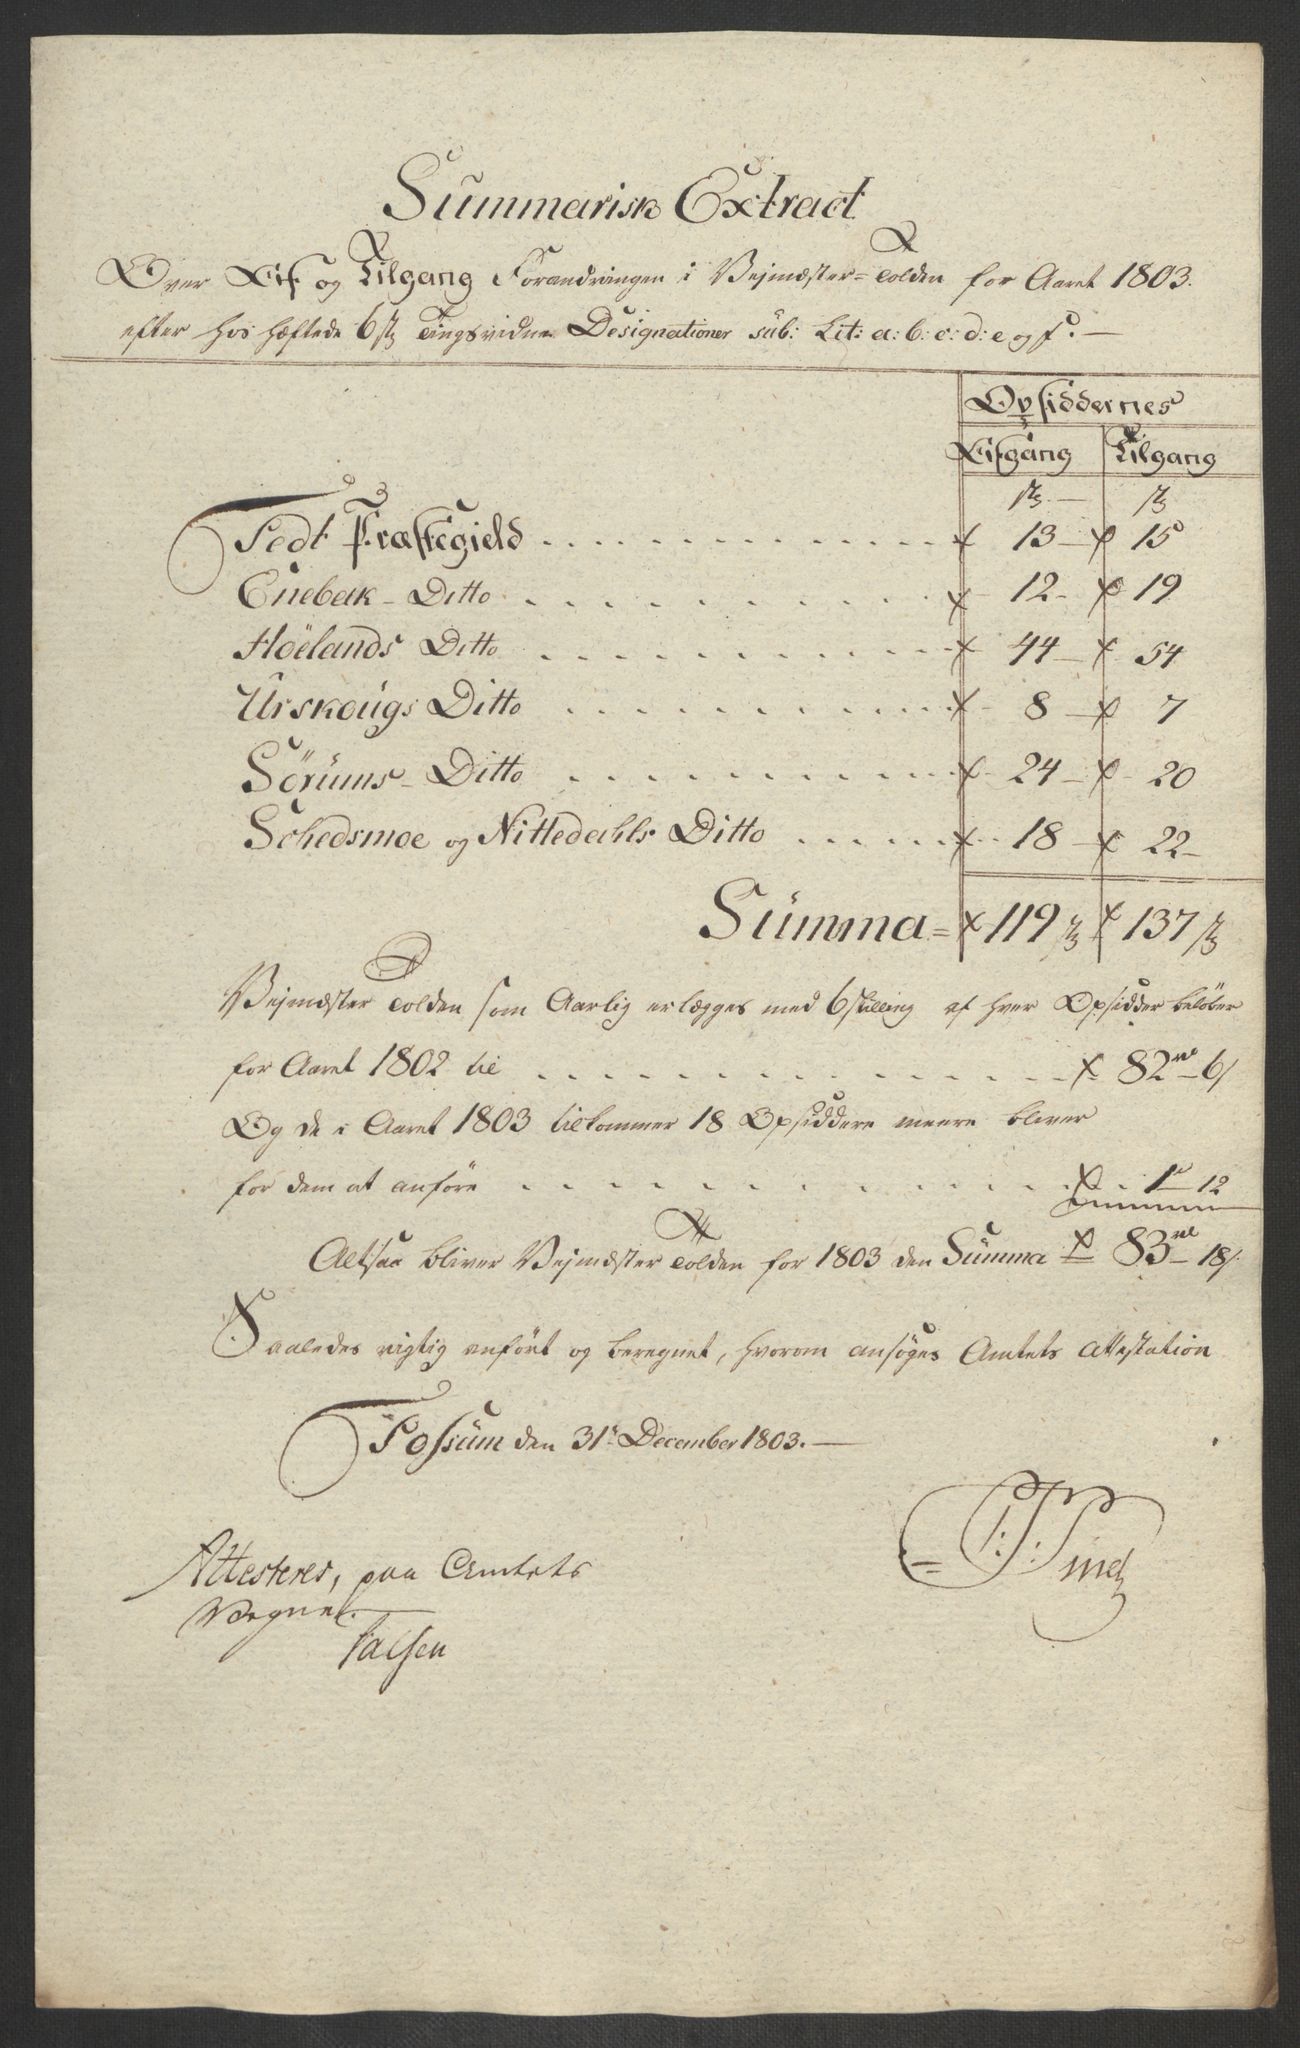 Summarisk Extract
Over Af og Tilgang Forandringen i Vejmester-Tolden for Aaret 1803.
efter hos hæftede 6 st Tingsvidne Designationer sub: Lit: a: b: c: d: e og f. —
Opsiddernes
Afgang Tilgang
st st
Fedt Præstegield . . . 13 — 15
Enebak - Ditto . . . 12 - 19
Höelands Ditto . . . 44 — 54
Urskougs Ditto . . . 8 — 7
Sörums - Ditto . . . 24 — 20
Schedsmoe og Nittedahls Ditto . . . 18 — 22 —
Summa = 119 st 137 st
Vejmester Tolden som Aarlig erlægges med 6 skilling af hver Opsidder beløber
for Aaret 1802 til . . . 82 rd 6 s
Og da i Aaret 1803 tilkommer 18 Opsiddere meere bliver
for dem at anföre . . . 1 rd 12
Altsaa bliver Vejmester Tolden for 1803 den Summa 83 rd 18 s.
Saaledes rigtig anfört og beregnet, hvorom ansöges Amtets Attestation
Fossum den 31te December 1803. —
Attesteres, paa Amtets
Vegne.
Falsen